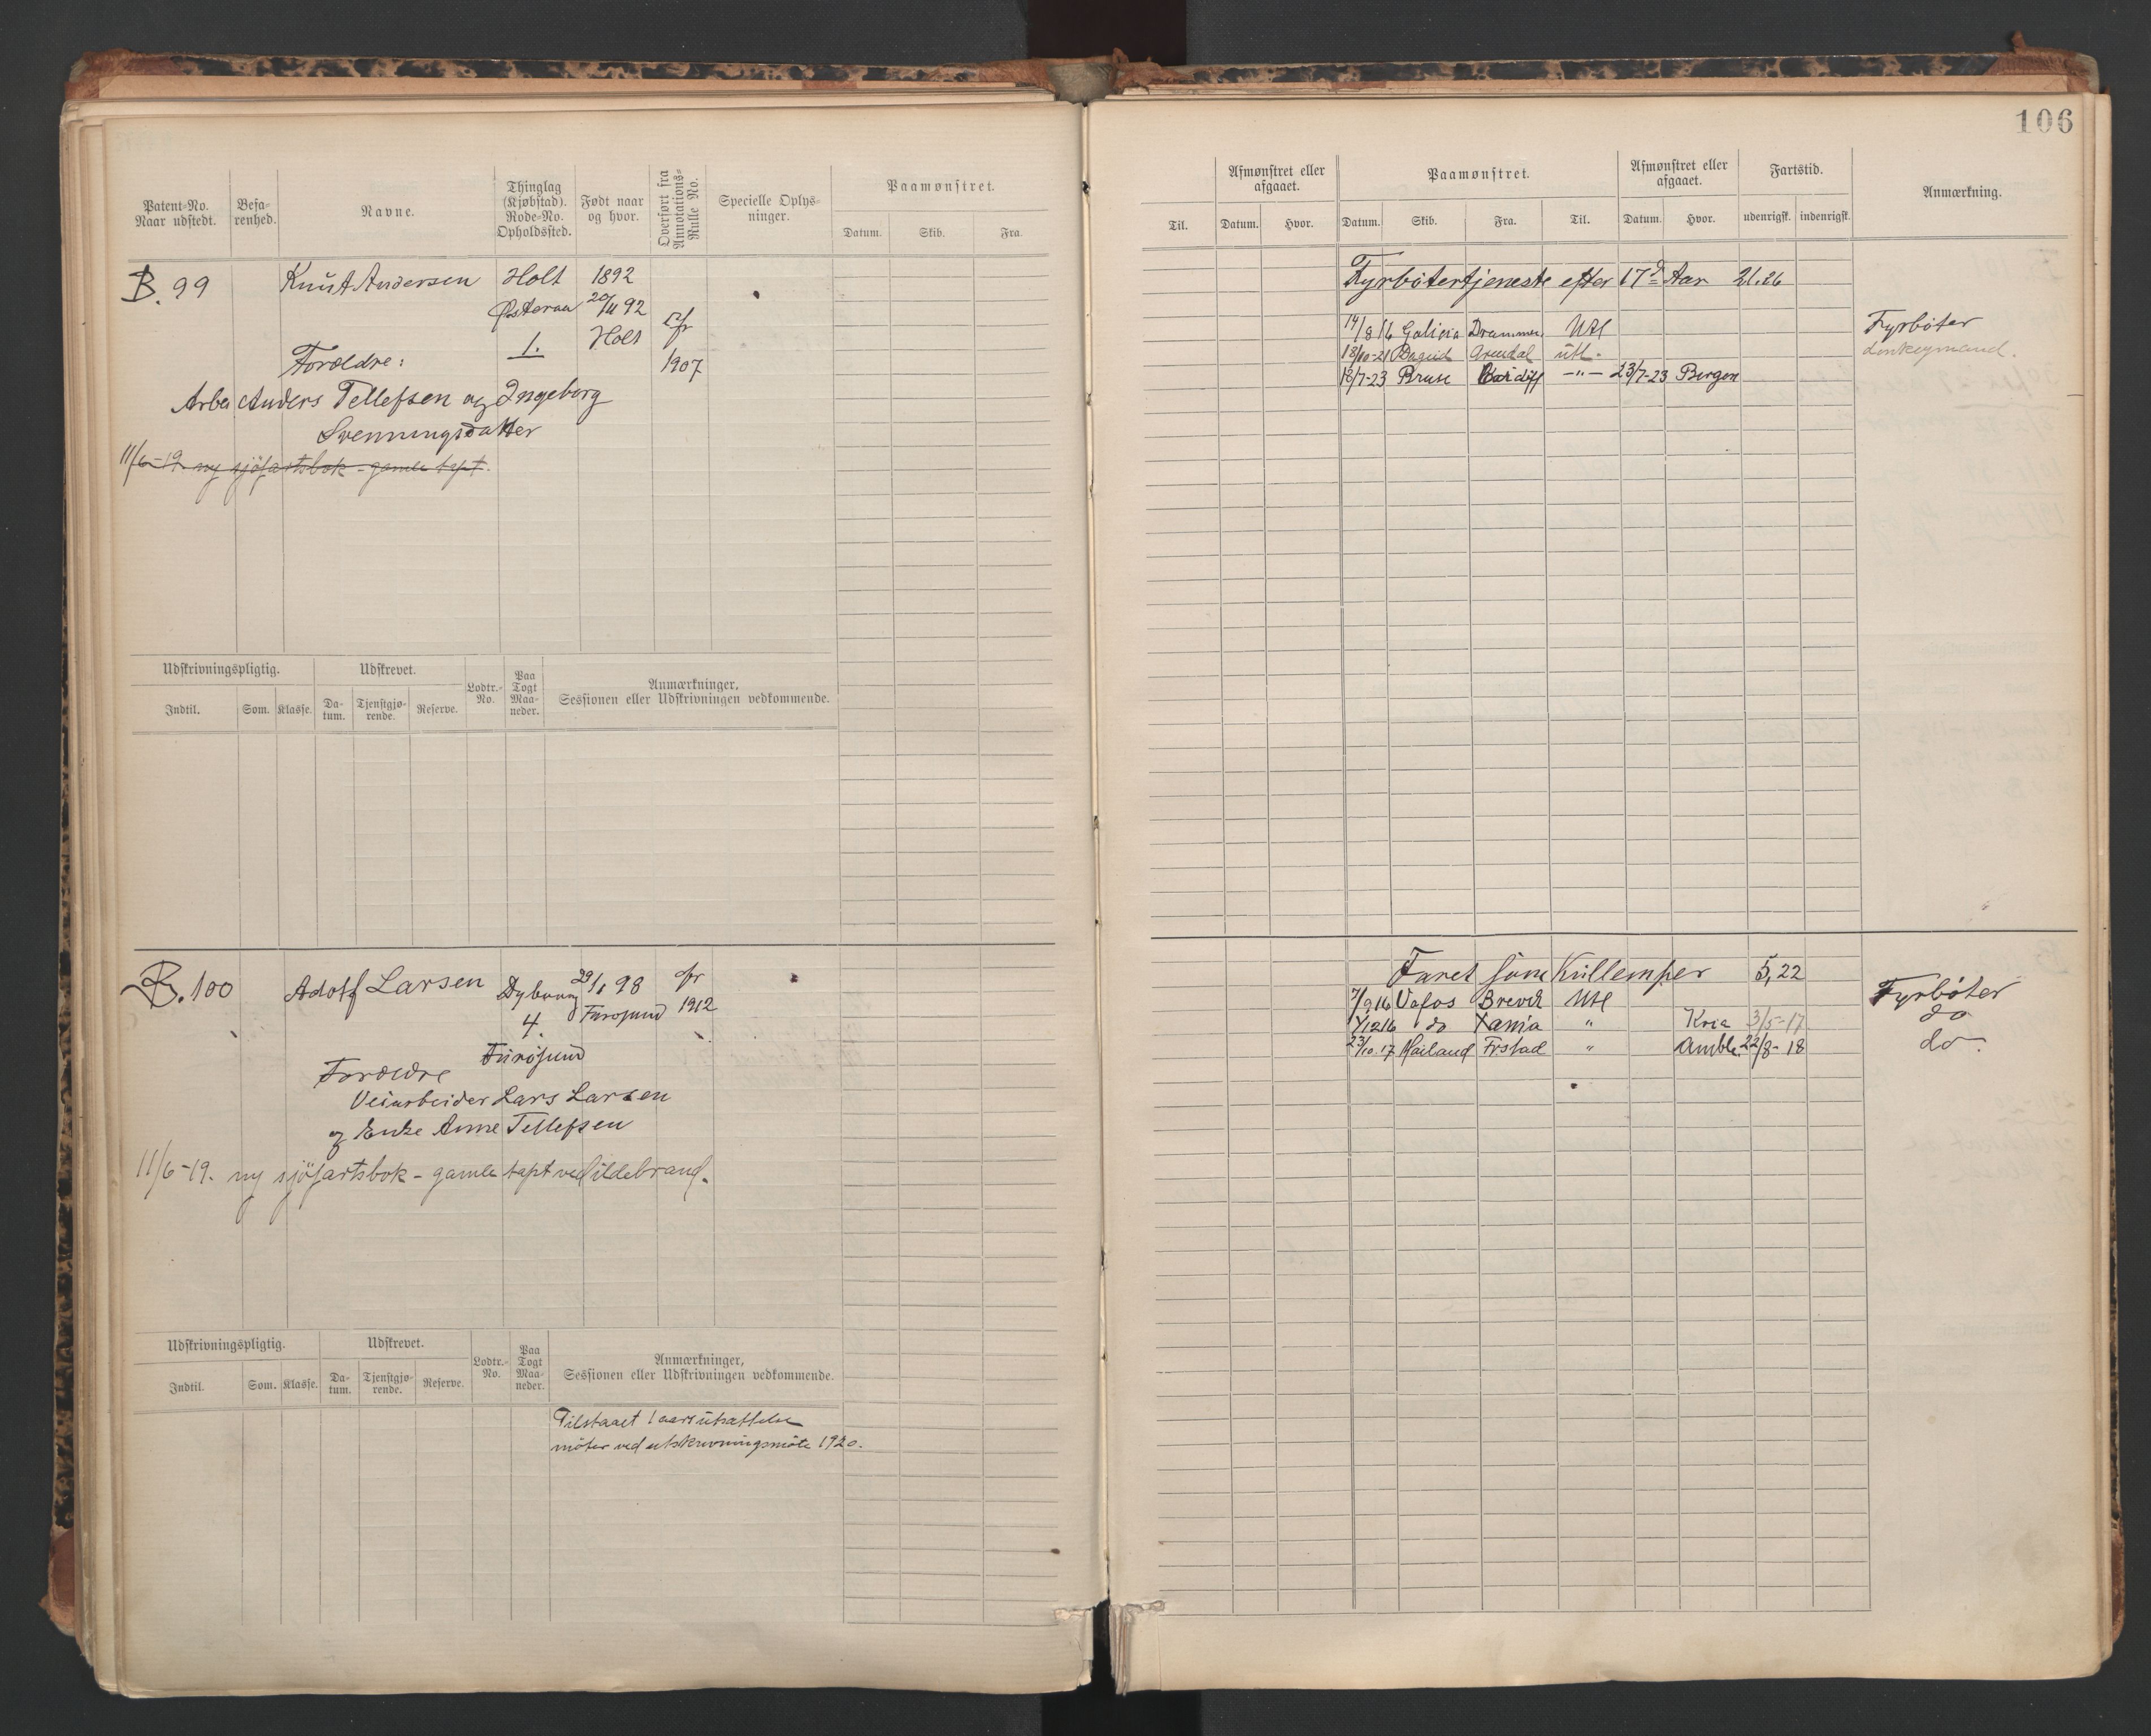 106
Patent-No. Naar udstedt.
Befarenhed.
Navne.
Thinglag (Kjøbstad). Rode-No. Opholdssted.
Født naar og hvor.
Overført fra Annotations-Rulle No.
Specielle Oplysninger.
Paamønstret.
Datum. Skib. Fra.
Til.
Afmønstret eller afgaaet.
Datum. Hvor.
Paamønstret.
Datum. Skib. Fra. Til.
Afmønstret eller afgaaet.
Datum. Hvor.
Fartstid.
udenrigsk. indenrigsk.
Anmærkning.
B. 99 Knut Andersen Holt 1892
Østeraa 20/11 92
1. Holt
1907
Forældre:
Anders Tellefsen og Ingeborg
Svenningsdatter
11/6-19. ny sjöfartsbok - gamle tapt.
Fyrbötertjeneste efter 17d Aar 21.26
14/8 16 Galicia Drammen Utl
18/10-21 Arendal utl.
18/7-23 Bruse Cardiff -"- 23/7-23 Bergen
Fyrböter
donkeymand.
Udskrivningspligtig. Udskrevet. Lodtr.-No. Paa Togt Maaneder. Anmærkninger, Sessionen eller Udskrivningen vedkommende.
Indtil. Som. Klasse. Datum. Tjenstgjørende. Reserve.
B. 100 Adolf Larsen Dybvaag 29/1 98
4. Furøsund 1912
Furøsund
Forældre
Veiarbeider Lars Larsen
og Enke Anne Tellefsen
11/6-19. ny sjöfartsbok - gamle tapt ved ildebrand.
Faret som Kullemper 5,22
7/9 16 Vafos Brevik Utl
1/12 16 do " Kria 3/5-17
23/10.17 Frstad " Amble 22/8-18
Fyrböter
do
do.
Udskrivningspligtig. Udskrevet. Lodtr.-No. Paa Togt Maaneder. Anmærkninger, Sessionen eller Udskrivningen vedkommende.
Indtil. Som. Klasse. Datum. Tjenstgjørende. Reserve.
Tilstaaet 1 aars utsættelse
möter ved utskrivningsmöte 1920.